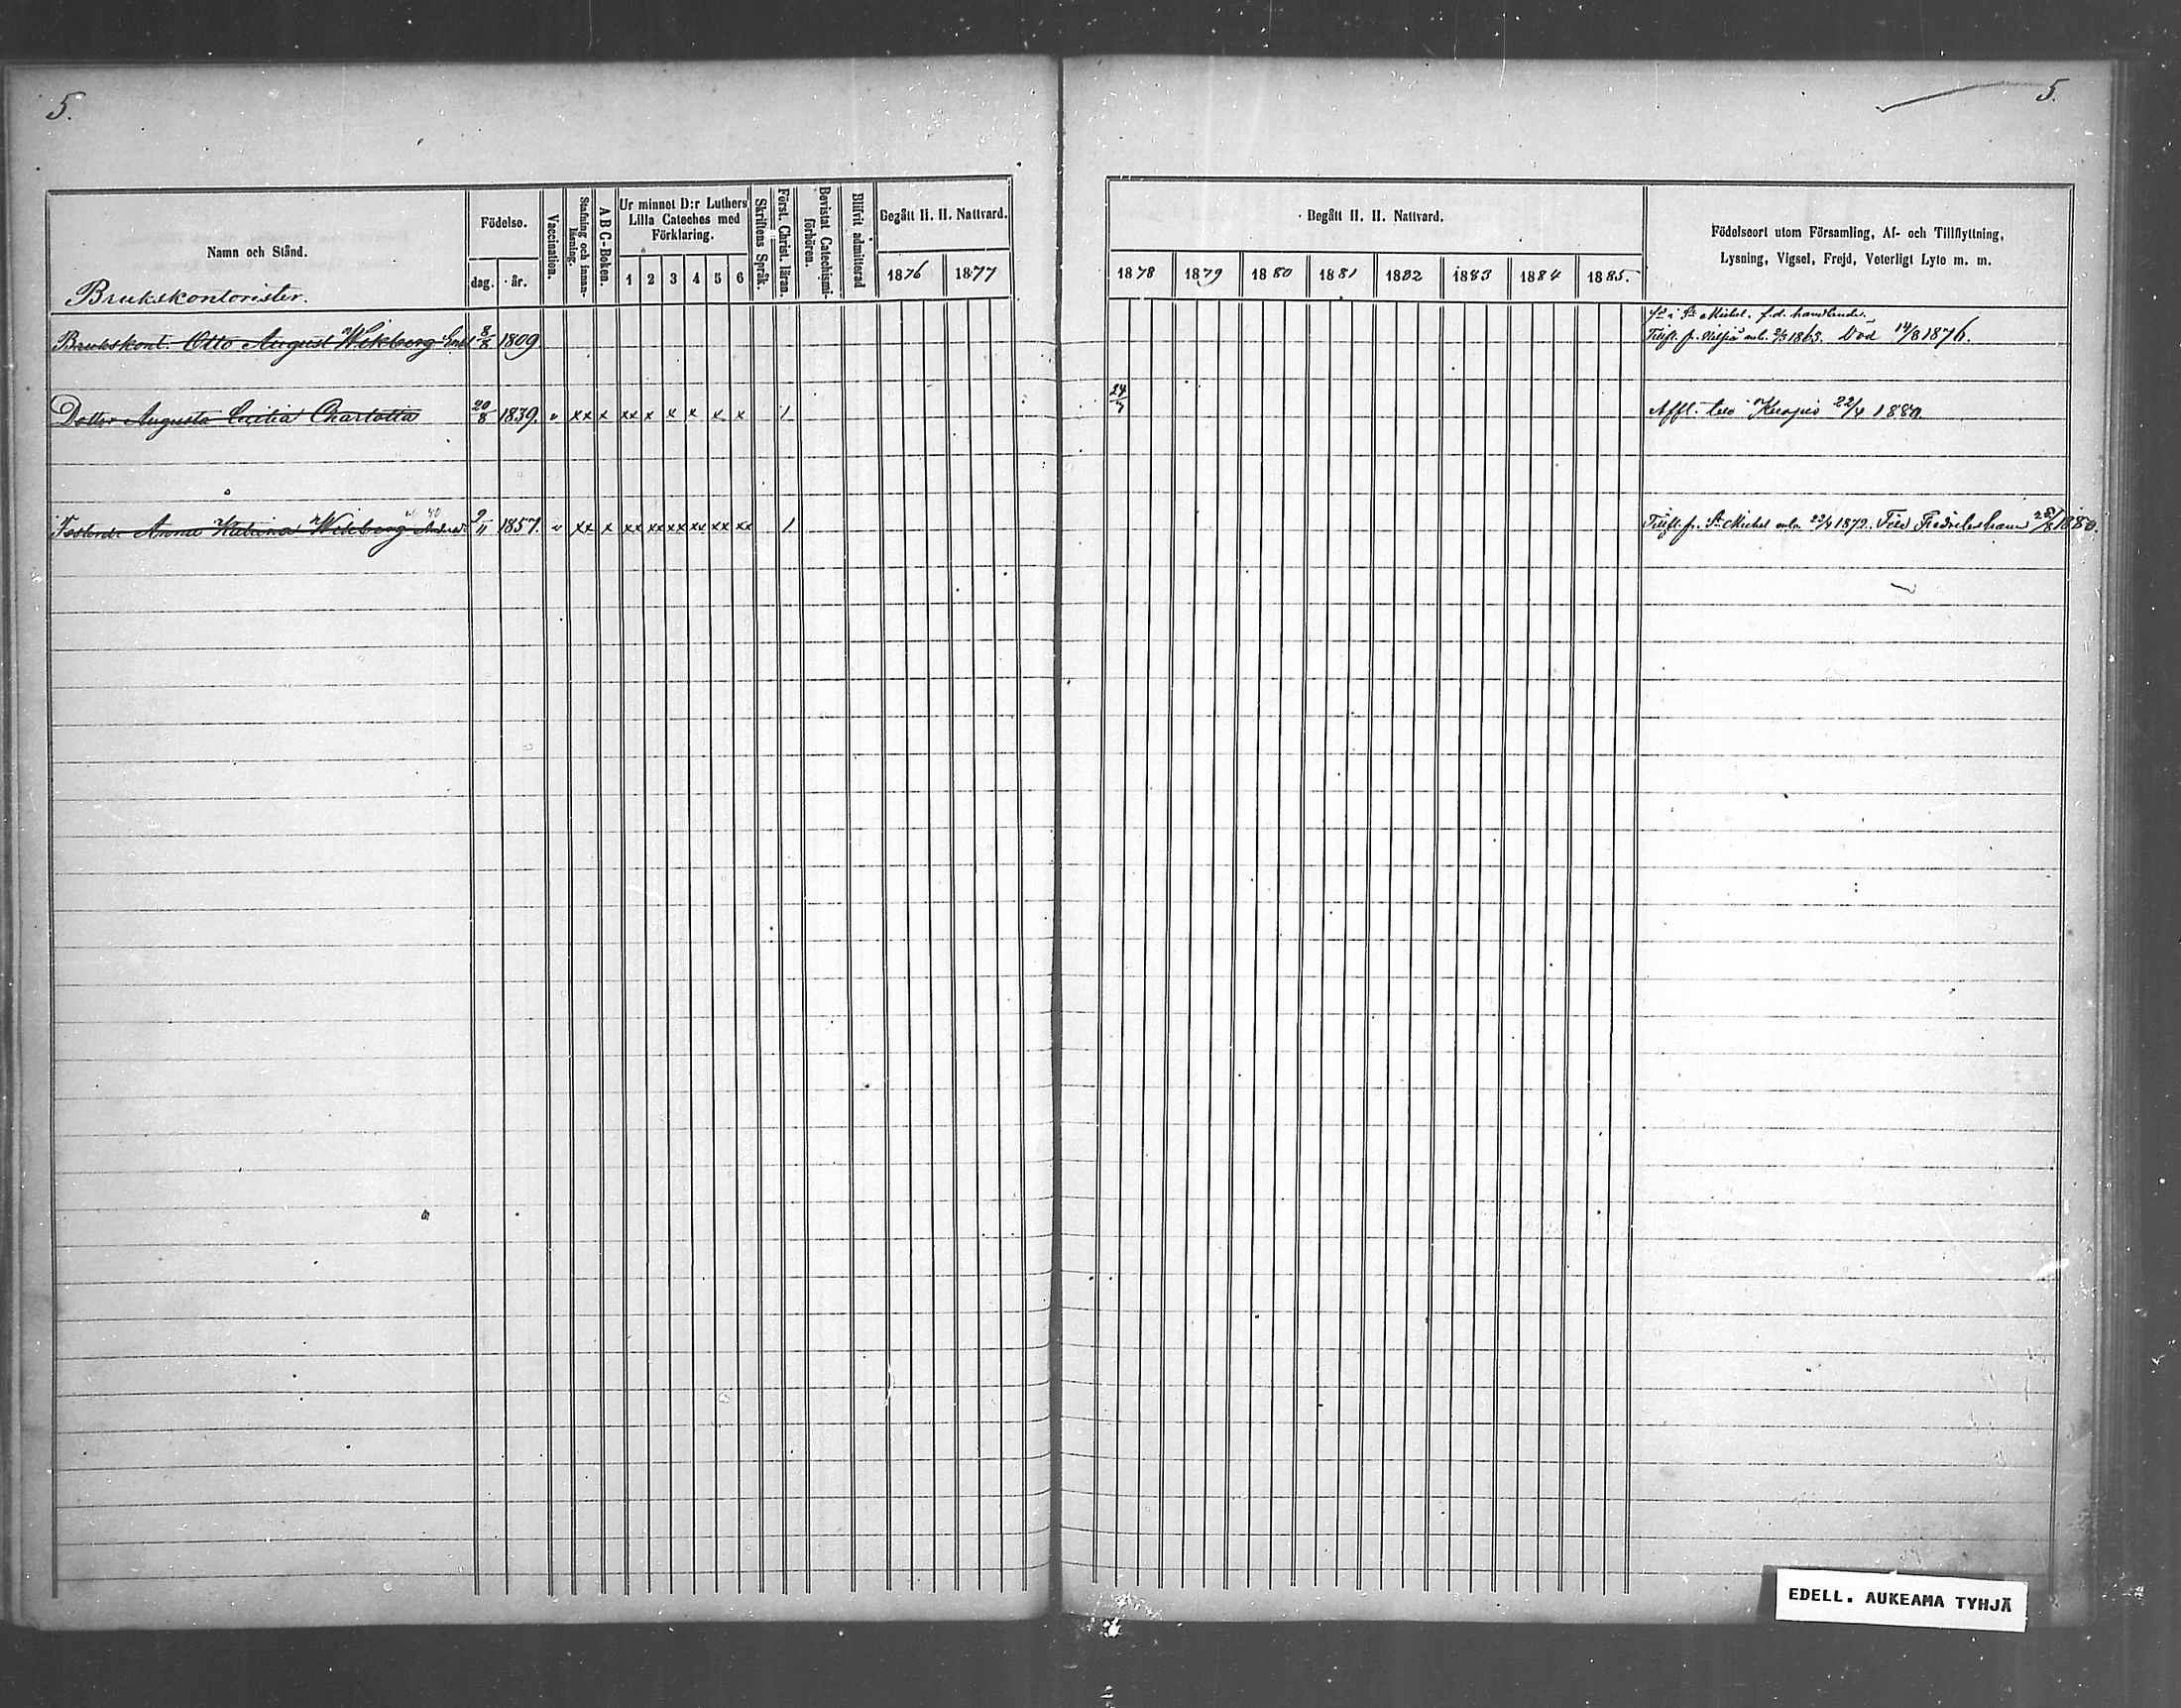 5.
5.
Namn och Stånd.
Brukskontorister.
Födelse.
dag.
år.
Vaccination.
Stafning och innan-
läsning.
A B C-Boken.
Ur minnet D:r Luthers
Lilla Cateches med
Förklaring.
1 2 3 4 5 6
Skriftens Språk.
Först. Christ. läran.
Bevistat Catechismi-
förhören.
Blifvit admitterad
Begått H. H. Nattvard.
1876 1877
Begått H. H. Nattvard.
1878 1879 1880 1881 1882 1883 1884 1885.
Födelseort utom Församling, Af- och Tillflyttning,
Lysning, Vigsel, Frejd, Veterligt Lyte m. m.
St Michel. f.d. handlande.
Brukskont. Otto August Wikberg 1809
Död 14/8 1876.
Dotter Augusta Cecilia Charlotta 20/8 1839. v xx x xx x x x x x 1 24/7
Affl. till Kuopio 22/4 1880.
Anna Katarina Wikberg 2/11 1857. v xx x xx xx xx xx xx xx 1
Tillfl. fr. St Michel Fredrikshamn 1880.
EDELL. AUKEAMA TYHJÄ